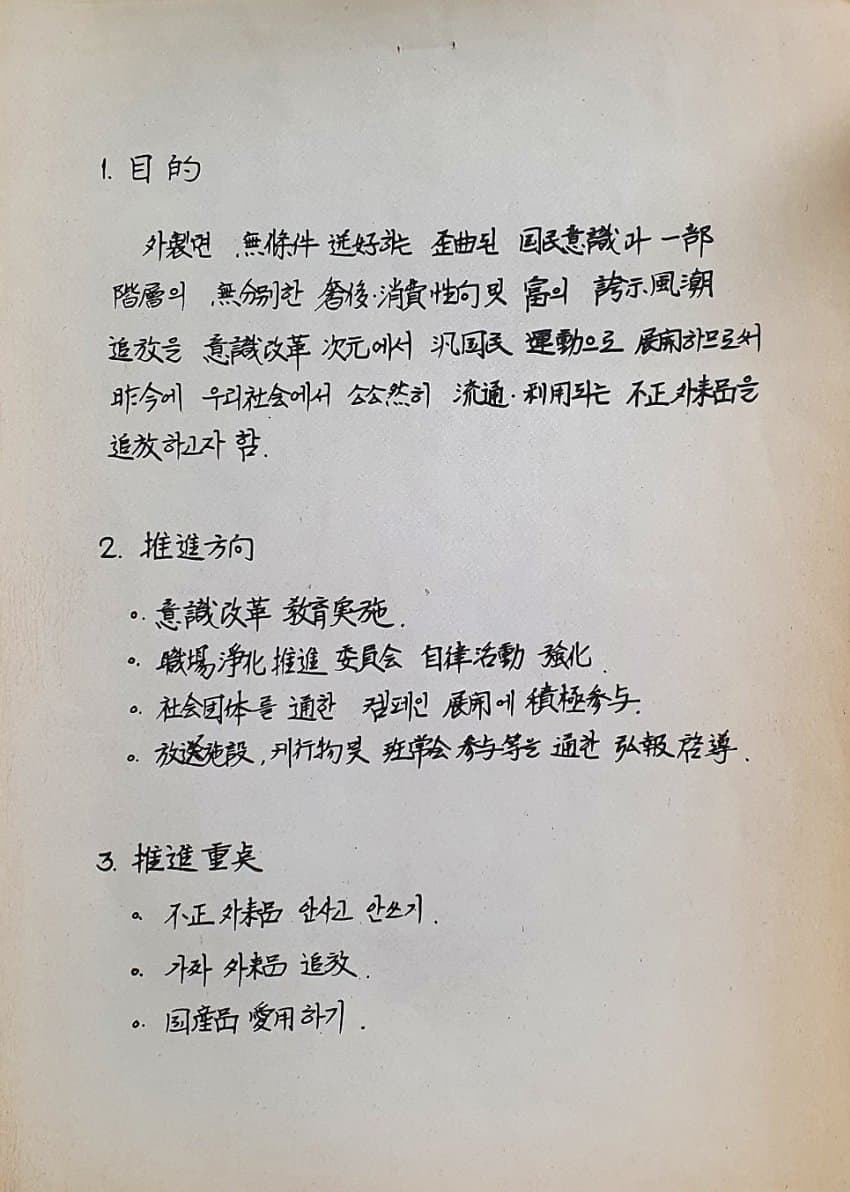 1. 目的
外製면 無條件 選好하는 歪曲된 国民意識과 一部
階層의 無分別한 奢侈·消費性向 및 富의 誇示風潮
追放을 意識改革 次元에서 汎国民 運動으로 展開하므로써
昨今에 우리社会에서 公公然히 流通·利用되는 不正外来品을
追放하고자 함.
2. 推進方向
o. 意識改革 敎育実施.
o. 職場淨化推進 委員会 自律活動 強化.
o. 社会団体를 通한 캠페인 展開에 積極参与.
o. 放送施設, 刊行物 및 班常会 参与等을 通한 弘報 啓導.
3. 推進重点
o. 不正外来品 안사고 안쓰기.
o. 가짜 外来品 追放.
o. 国産品 愛用하기.